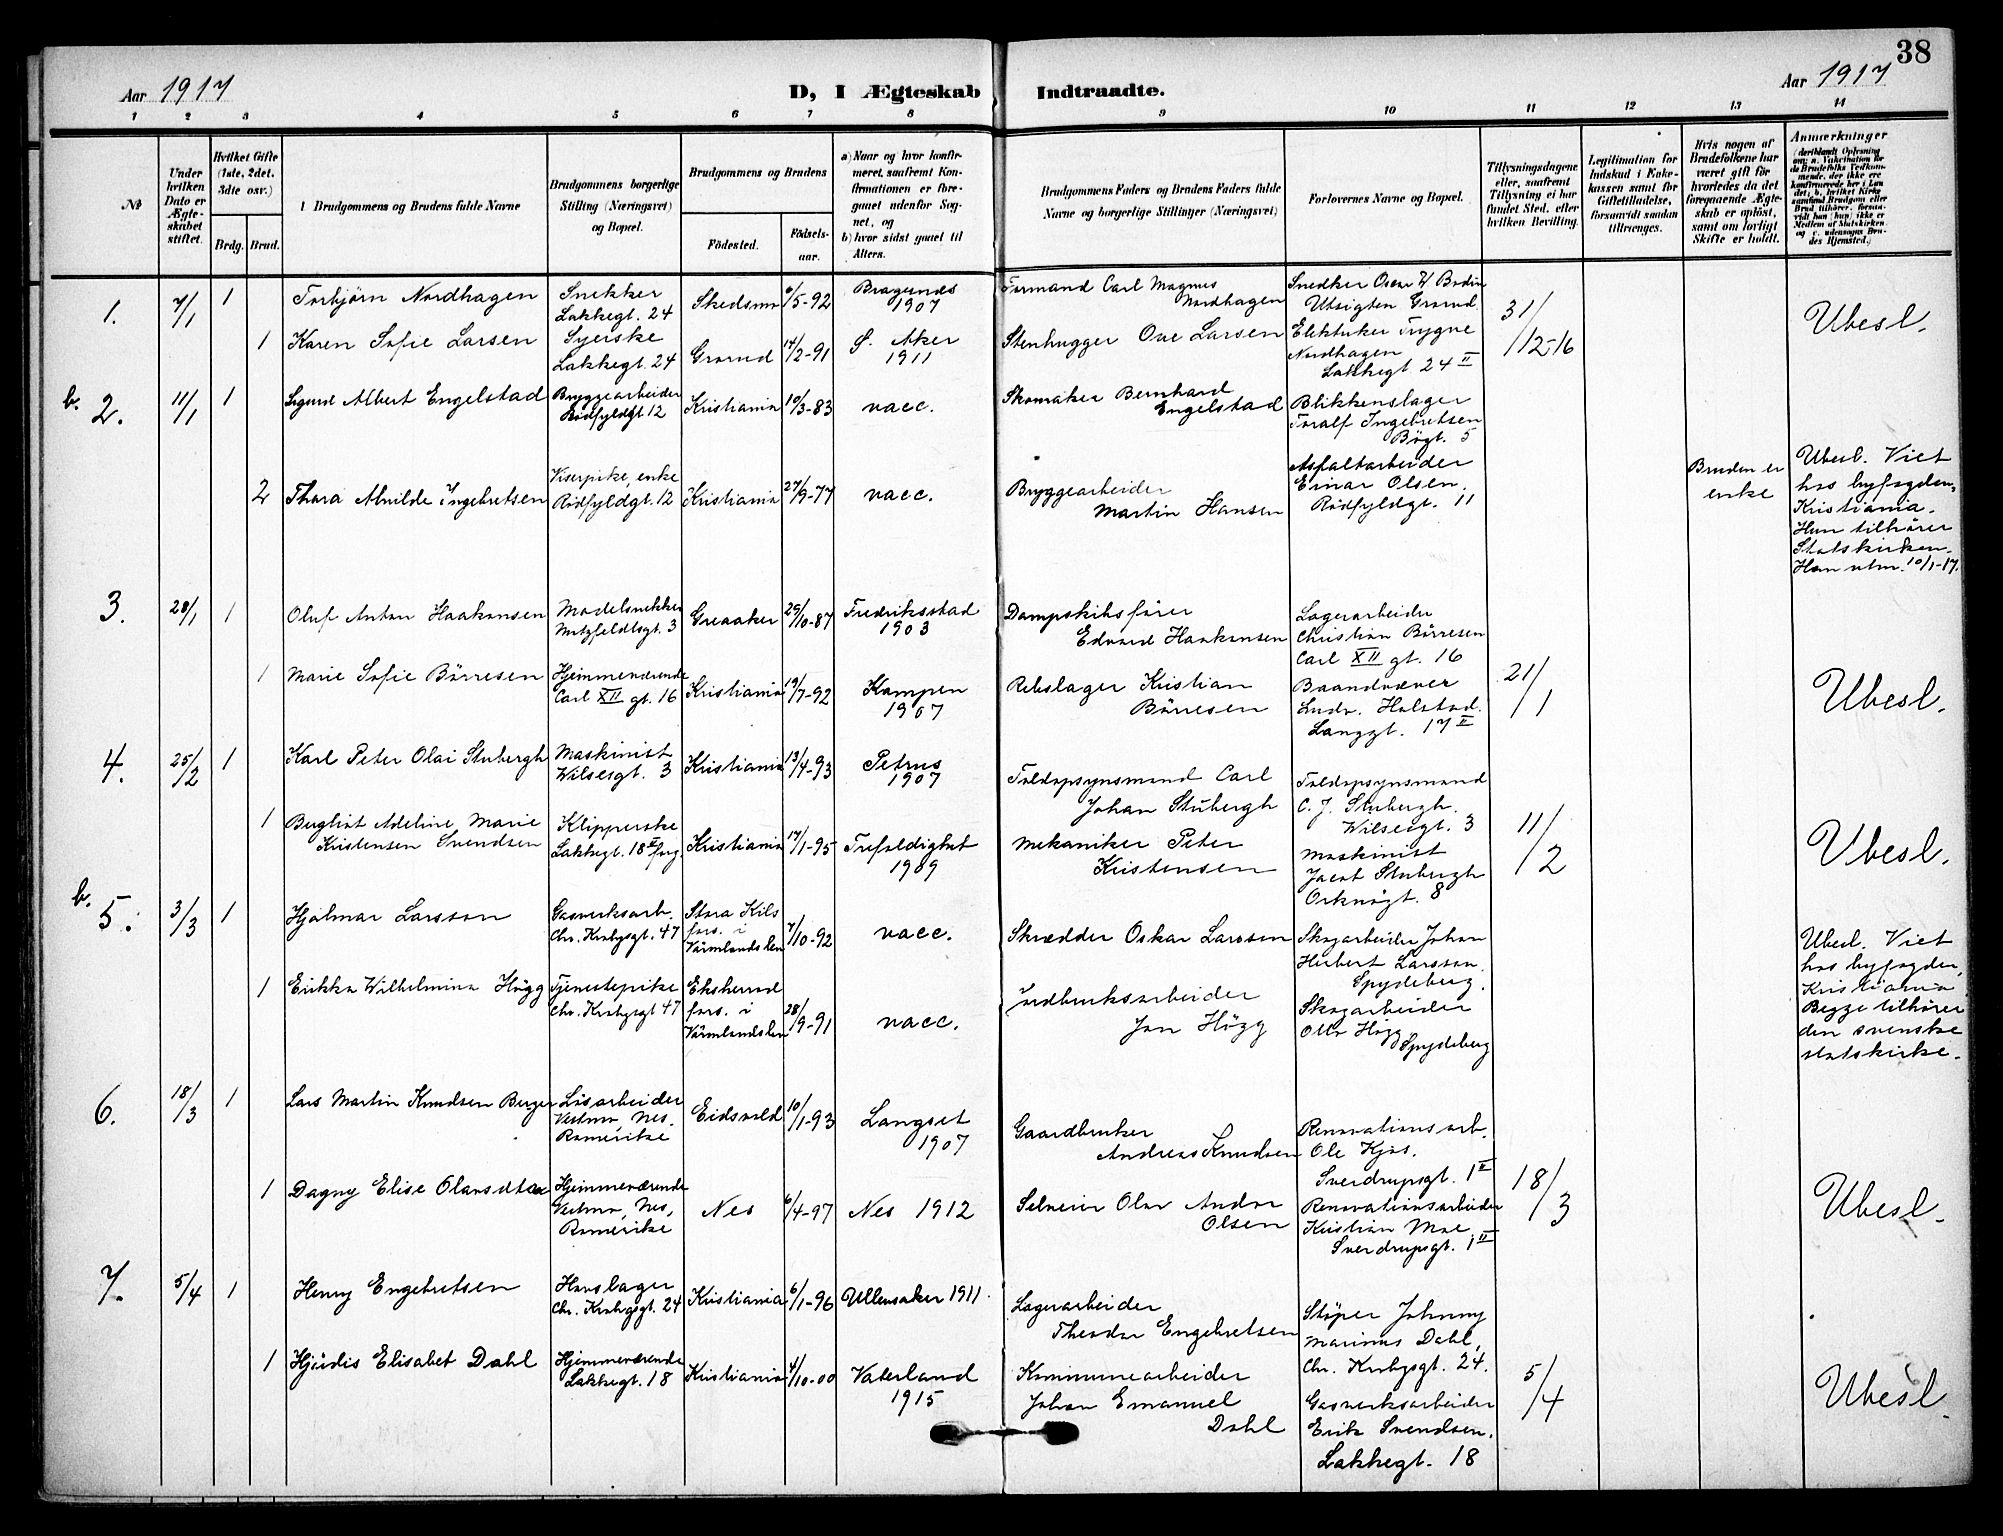 38
Aar 1917
D, I Ægteskab Indtraadte.
Aar 1917
1 2 3 4 5 6 7 8 9 10 11 12 13 14
№
Under hvilken Dato er Ægteskabet stiftet.
Hvilket Gifte (1ste, 2det, 3dte osv.)
Brdg. Brud.
Brudgommens og Brudens fulde Navne
Brudgommens borgerlige Stilling (Næringsvei) og Bopæl.
Brudgommens og Brudens
Födested.
Födsels-aar.
a) Naar og hvor konfirmeret, saafremt Konfirmationen er foregaaet udenfor Sognet, og
b) hvor sidst gaaet til Alters.
Brudgommens Faders og Brudens Faders fulde Navne og borgerlige Stillinger (Næringsvei)
Forlovernes Navne og Bopæl.
Tillysningsdagene eller, saafremt Tillysning ei har fundet Sted, efter hvilken Bevilling.
Legitimation for Indskud i Enkekassen samt for Giftetilladelse, forsaavidt saadan tiltrænges.
Hvis nogen af Brudefolkene har været gift før hvorledes da det foregaaende Ægteskab er oplöst, samt om lovligt Skifte er holdt.
Anmærkninger
1. 7/1 1
Torbjörn Nordhagen
Snekker
Lakkegt. 24
Skedsmo
6/5-92
Bragernes
1907
Formand Carl Magnus
Nordhagen
Snedker Oscar W Bodin
Utsigten Grorud
31/12-16
Ubesl.
1
Karen Sofie Larsen
Syerske
Lakkegt. 24
Grorud
14/2-91
Ö. Aker
1911
Stenhugger Ove Larsen
Elektriker Trygve
Nordhagen
Lakkegt 24 II
b. 2. 11/1 1
Sigurd Albert Engelstad
Bryggearbeider
Rödfyldgt 12
Kristiania
10/3-83
vacc.
Skomaker Bernhard
Engelstad
Blikkenslager
Toralf Ingebretsen
Bögt. 5
2
Thora Alvilde Ingebretsen
Viserpike, enke
Rödfyldgt. 12
Kristiania
27/9-77
vacc.
Bryggearbeider
Martin Hansen
Asfaltarbeider
Einar Olsen.
Rödfyldgt. 11
Bruden er
enke
Ubesl. Viet
hos byfogden,
Kristiania.
Hun tilhörer
Statskirken.
Han utm. 10/1-17.
3. 28/1 1
Oluf Anton Haakonsen
Modelsnekker
Motzfeldtsgt. 3
Greaaker
29/10-87
Fredriksstad
1903
Dampskibsförer
Edvard Haakonsen
Lagerarbeider
Christian Börresen
Carl XII gt. 16
1
Marie Sofie Börresen
Hjemmeværende
Carl XII gt. 16
Kristiania
19/7-92
Kampen
1907
Rebslager Kristian
Börresen
Baandvæver
Ludv. Halstad.
Langgt. 17 II
21/1
Ubesl.
4. 25/2 1
Karl Peter Olai Stubergh
Maskinist
Wilsesgt. 3
Kristiania
13/4-93
Petrus
1907
Toldopsynsmand Carl
Johan Stubergh
Toldopsynsmand
C. J. Stubergh.
Wilsesgt. 3
11/2
1
Bergliot Adeline Marie
Kristensen Svendsen
Klipperske
Lakkegt. 18 II forg.
Kristiania
17/1-95
Trefoldighet
1909
Mekaniker Peter
Kristensen
Maskinist
Jacob Stubergh
Orknögt. 8
Ubesl.
b. 5. 3/3 1
Hjalmar Larsson
Gasverksarb.
Chr. Krohgsgt. 47
Stora Kils
fors. i
Värmlandslen
7/10-92
vacc.
Skrædder Oskar Larsson
Skogarbeider Johan
Herbert Larsson.
Spydeberg.
Ubesl. Viet
hos byfogden,
Kristiania.
Begge tilhörer
den svenske
statskirke.
1
Erikka Wilhelmina Högg
Tjenestepike
Chr. Krohgsgt 47
Eksherrad
fors. i
Värmlandslen
28/9-91
vacc.
Jordbruksarbeider
Jon Högg
Skogarbeider
Otto Högg
Spydeberg
6. 18/3 1
Lars Martin Knudsen Berger
Lösarbeider
Vestmo, Nes.
Romerike
Eidsvold
10/1-93
Langset
1907
Gaardbruker
Andreas Knudsen
Renovationsarb.
Ole Kjos.
Sverdrupsgt. 1 II
18/3
1
Dagny Elise Olavsdtter
Hjemmeværende
Vestmo, Nes,
Romerike
Nes
6/4-97
Nes 1912
Selveier Olav Andor
Olsen
Renovationsarbeider
Kristian Moe
Sverdrupsgt. 1 II
Ubesl.
7. 5/4 1
Henry Engebretsen
Hovslager
Chr. Krohgsgt. 24
Kristiania
6/1-96
Ullensaker 1911.
Lagerarbeider
Theodor Engebretsen
Stöper Johnny
Marinus Dahl,
Chr. Krohgsgt. 24.
5/4
1
Hjördis Elisabet Dahl
Hjemmeværende
Lakkegt. 18
Kristiania
4/10-00
Vaterland
1915
Kommunearbeider
Johan Emanuel
Dahl
Gasverksarbeider
Erik Svendsen.
Lakkegt. 18
Ubesl.